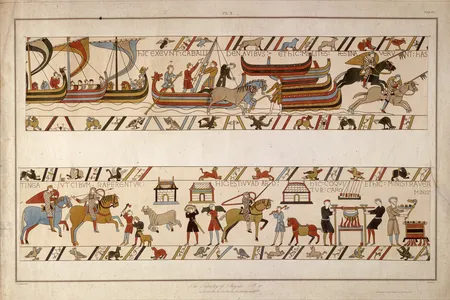 HIC EXEVNT: CABALLI DENAVIBVS: ETHIC: MILITES: FESTINA VERVNT: HAS
TINGA VTCIBVM: RAPERENTVR: HIC: EST: VVADARD: HIC: COQVI ETHIC: MINISTRAVER
TVR: CARO
The Tapestry of Bayeux